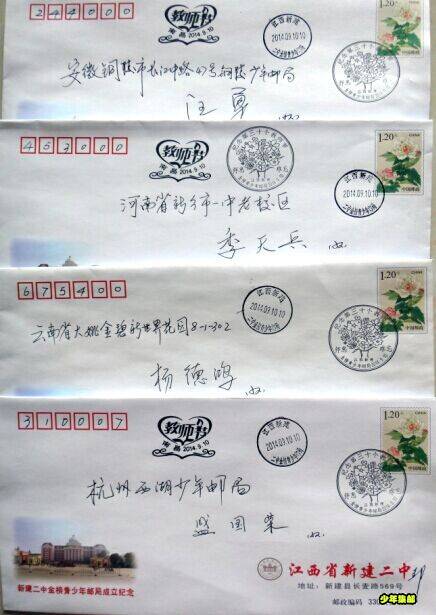 244000
教师节
南昌 2014.9.10
江西新建
2014.09.10.10
1.20
中国邮政
安徽铜陵市长江中路47号铜陵少年邮局
汪军
收
453000
教师节
南昌 2014.9.10
江西新建
2014.09.10.10
1.20
中国邮政
河南省新乡市一中老校区
季天兵
收
675400
江西新建
2014.09.10.10
1.20
中国邮政
云南省大姚金碧新世界花园8-1-302
杨德鸣
收
310007
教师节
南昌 2014.9.10
江西新建
2014.09.10.10
1.20
中国邮政
杭州西湖少年邮局
盛国荣
收
新建二中金桥青少年邮局成立纪念
江西省新建二中
地址：新建县长麦路569号
邮政编码 330
少年集邮